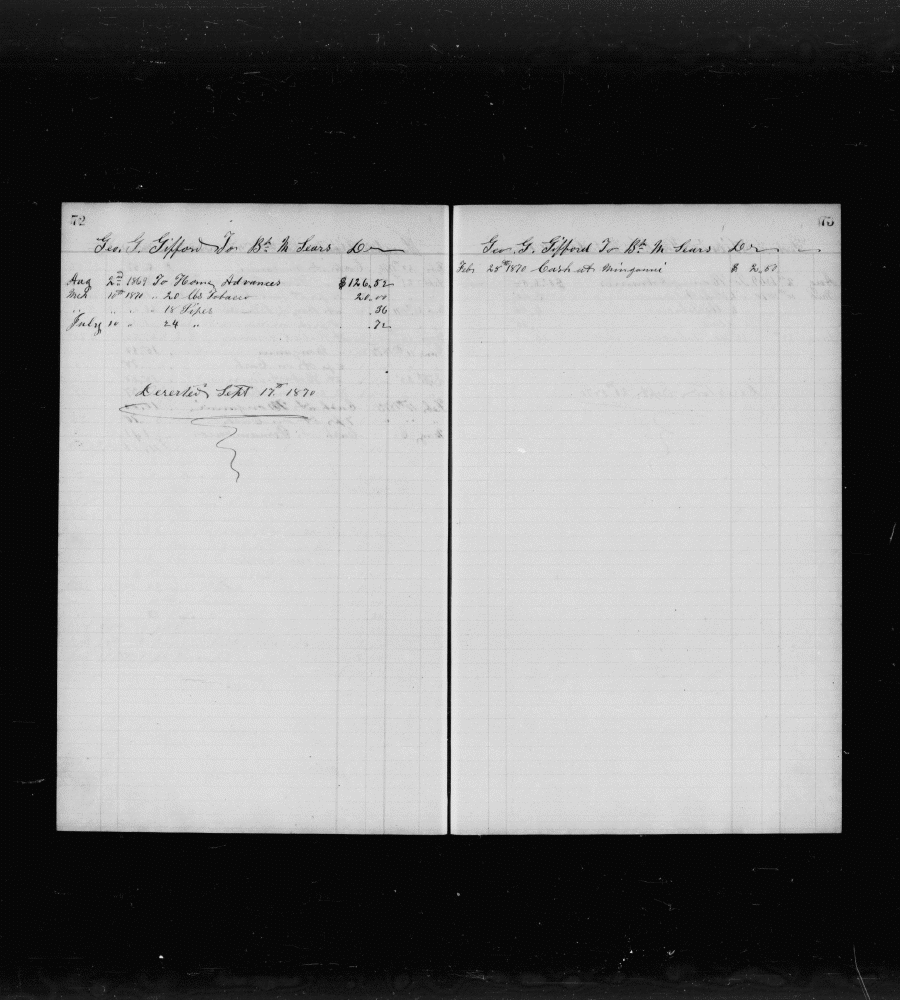 72
Geo. G. Gifford To Bk M Sears Dr
Aug 2nd 1869 To Home Advances $126.52
Mch 10th 1870 " 20 lbs Tobacco 20.00
" " " 18 Pipes .36
July 10 " 24 " .72
Deserted Sept 17th 1870
73
Geo. G. Gifford To Bk M Sears Dr
Feb. 25th 1870 Cash at Monganui $ 2.50